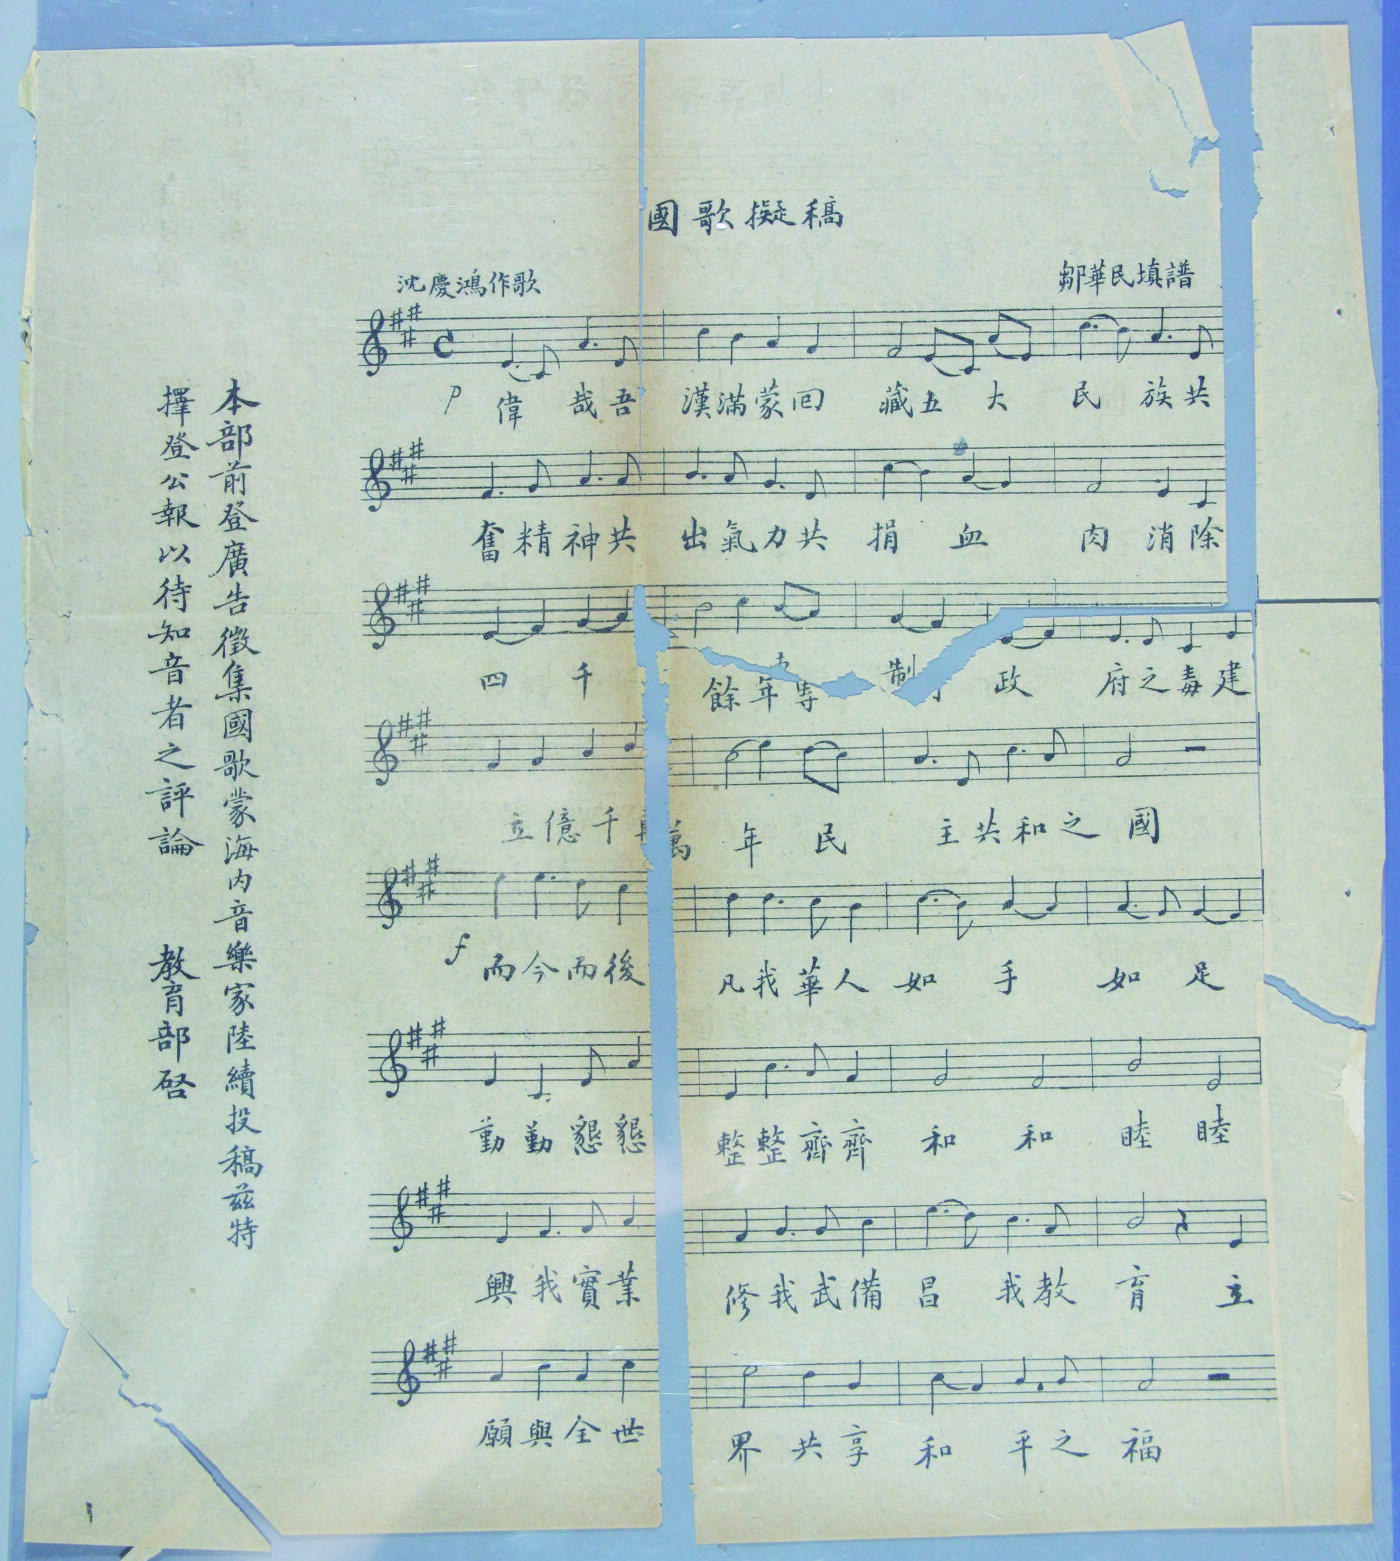 國歌擬稿
沈慶鴻作歌
鄒華民填譜
p
偉哉吾漢滿蒙回藏五大民族共
奮精神共出氣力共捐血肉消除
四千餘年專制政府之毒建
立億千萬年民主共和之國
f
而今而後凡我華人如手如足
勤勤懇懇整整齊齊和和睦睦
興我實業修我武備昌我教育立
願與全世界共享和平之福
本部前登廣告徵集國歌蒙海內音樂家陸續投稿茲特
擇登公報以待知音者之評論 教育部啓